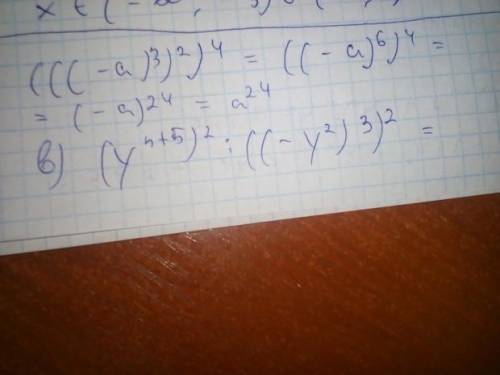 (((-a)³)²)⁴ = ((-a)⁶)⁴ =
= (-a)²⁴ = a²⁴
в) (yⁿ⁺⁵)² : ((-y²)³)² =